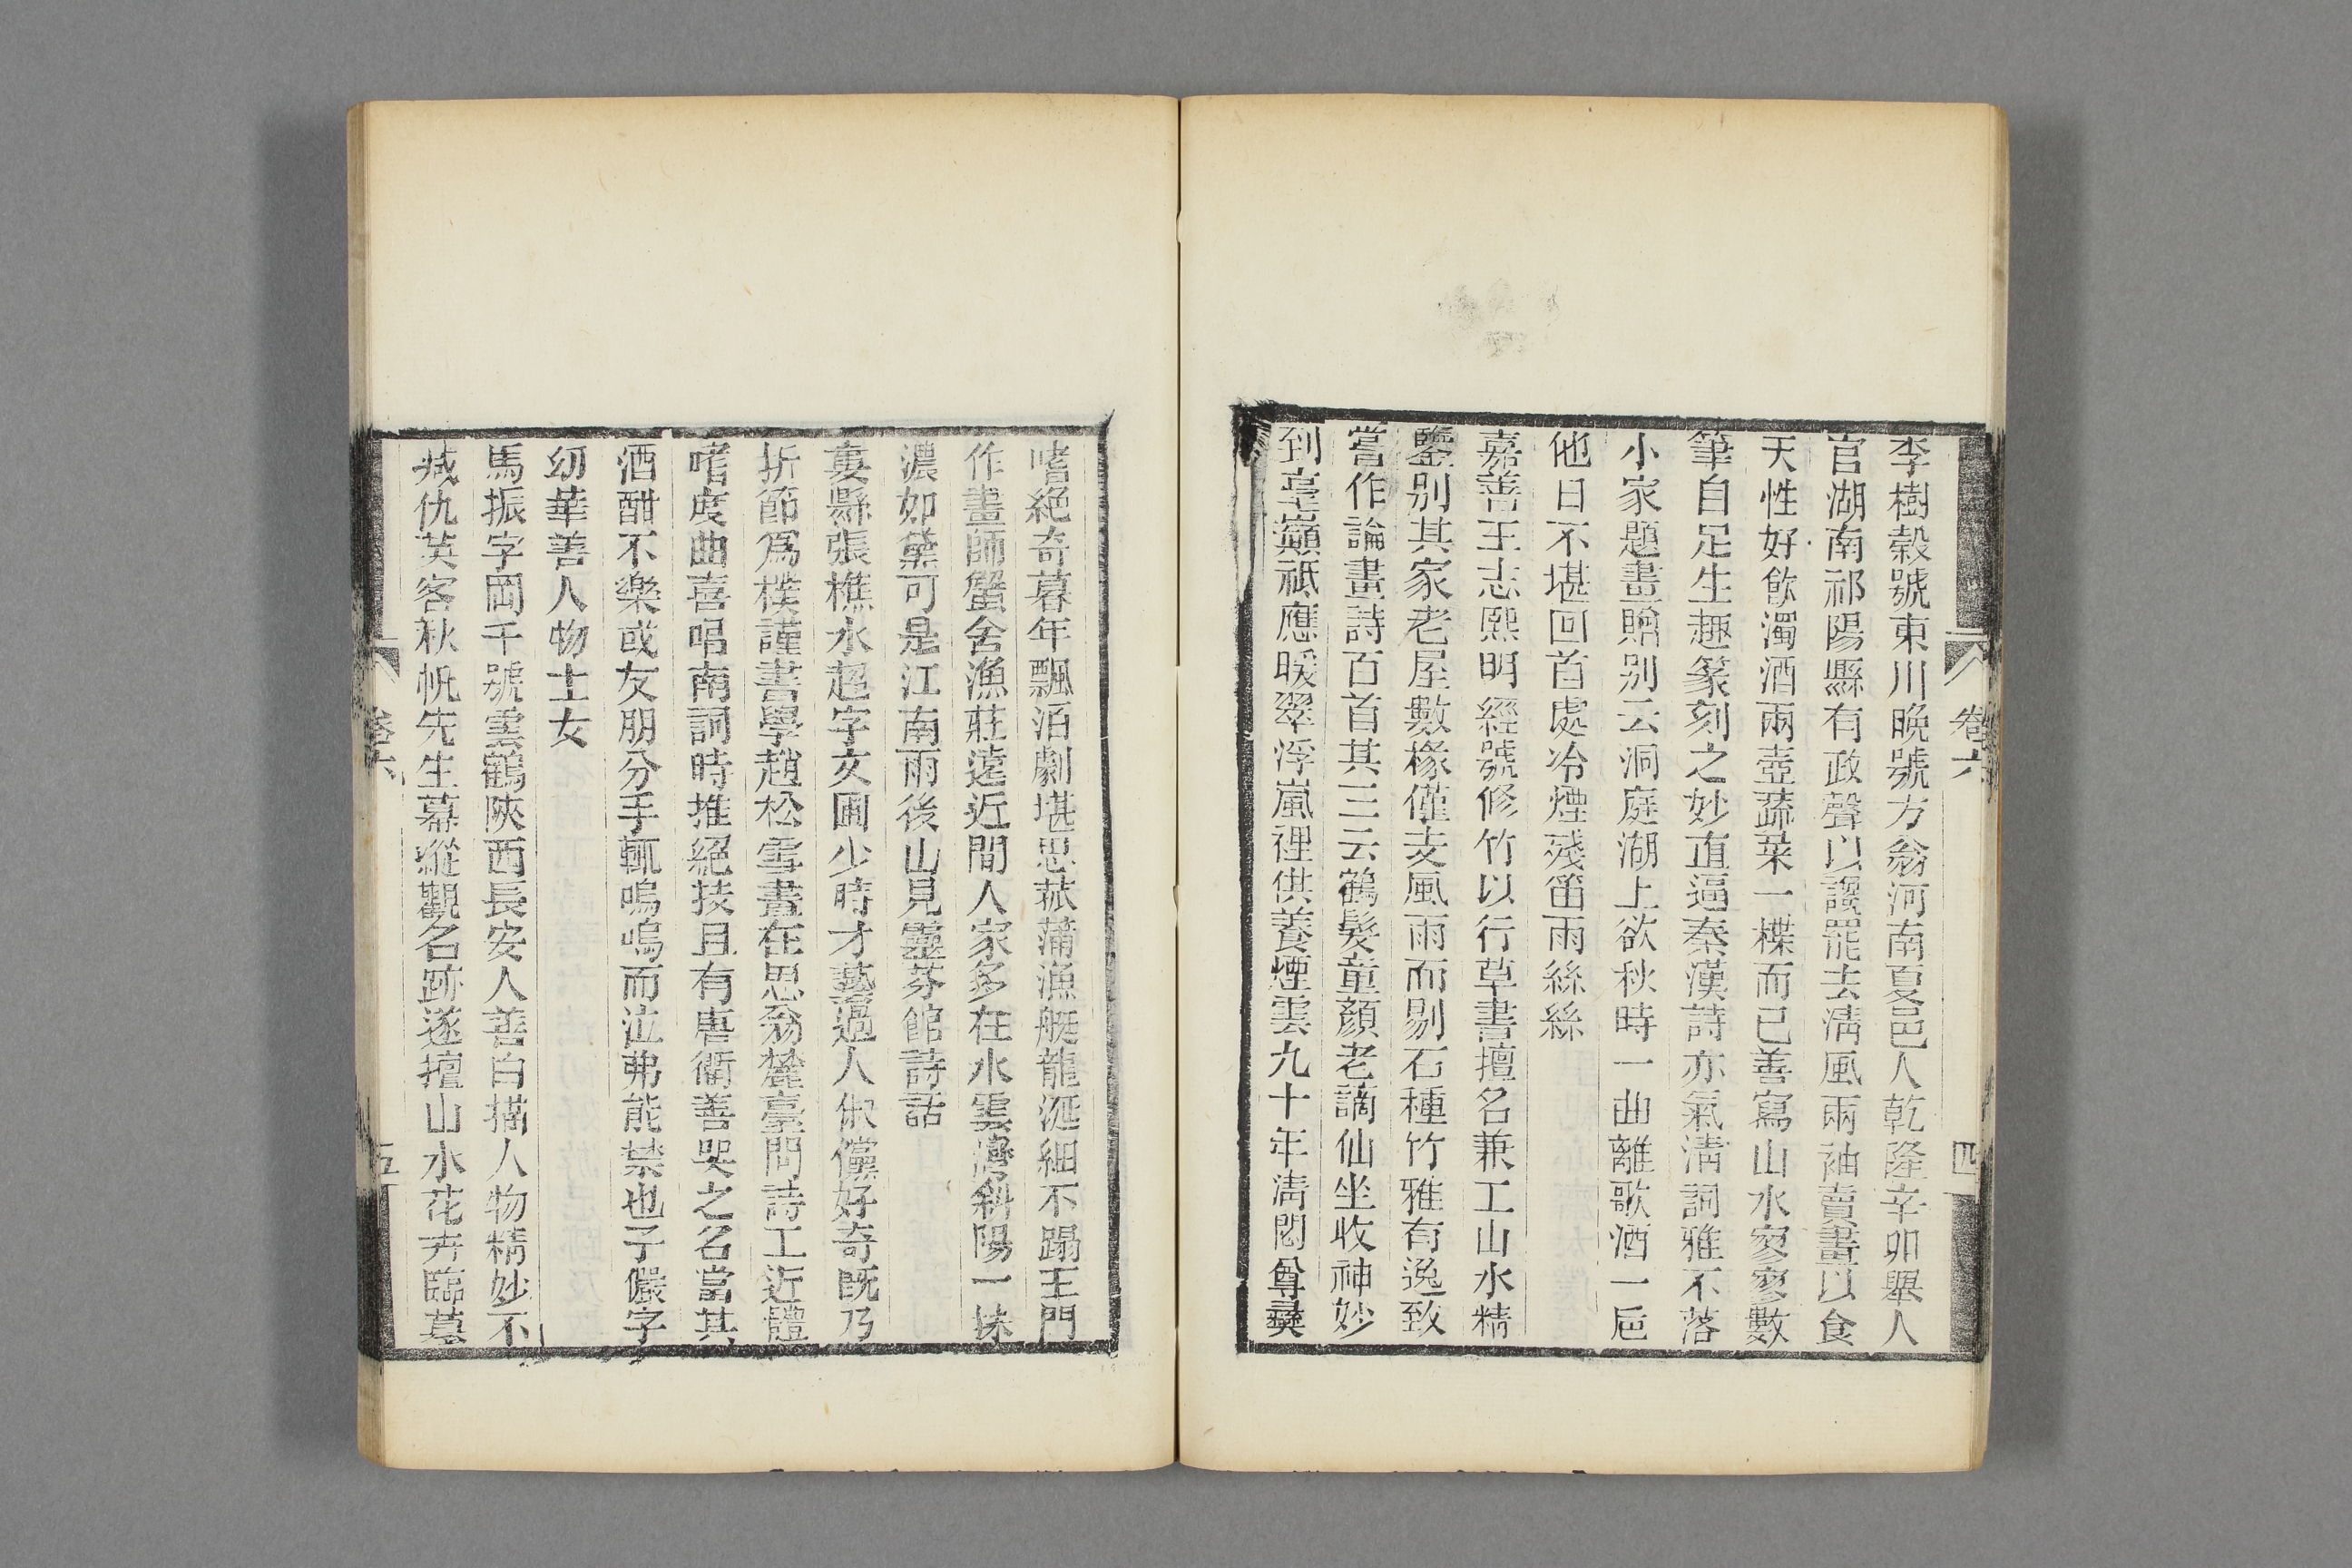 卷六
四
李樹穀號東川晚號方翁河南夏邑人乾隆辛卯舉人
官湖南祁陽縣有政聲以誤罷去清風兩袖賣畫以食
天性好飲濁酒兩壺蔬菜一楪而已善寫山水寥寥數
筆自足生趣篆刻之妙直逼秦漢詩亦氣清詞雅不落
小家題畫贈別云洞庭湖上欲秋時一曲離歌酒一巵
他日不堪回首處冷煙殘笛雨絲絲
嘉善王志熙明經號修竹以行草書擅名兼工山水精
鑒別其家老屋數椽僅支風雨而剔石種竹雅有逸致
嘗作論畫詩百首其三云鶴髮童顏老謫仙坐收神妙
到臺巔祗應暖翠浮嵐裡供養煙雲九十年清閟尊彝
嗜絕奇暮年飄泊劇堪思菰蒲漁艇龍涎細不蹋王門
作畫師蟹舍漁莊遠近間人家多在水雲灣斜陽一抹
濃如黛可是江南雨後山見靈芬館詩話
婁縣張樵水超字友圃少時才藝過人俶儻好奇既乃
折節爲樸謹書學趙松雪畫在思翁麓臺問詩工近體
嗜度曲喜唱南詞時推絕技且有唐衢善哭之名當其
酒酣不樂或友朋分手輒嗚嗚而泣弗能禁也子儼字
幼華善人物士女
馬振字岡千號雲鶴陝西長安人善白描人物精妙不
減仇英客秋帆先生幕縱觀名跡遂擅山水花卉臨摹
卷六
五